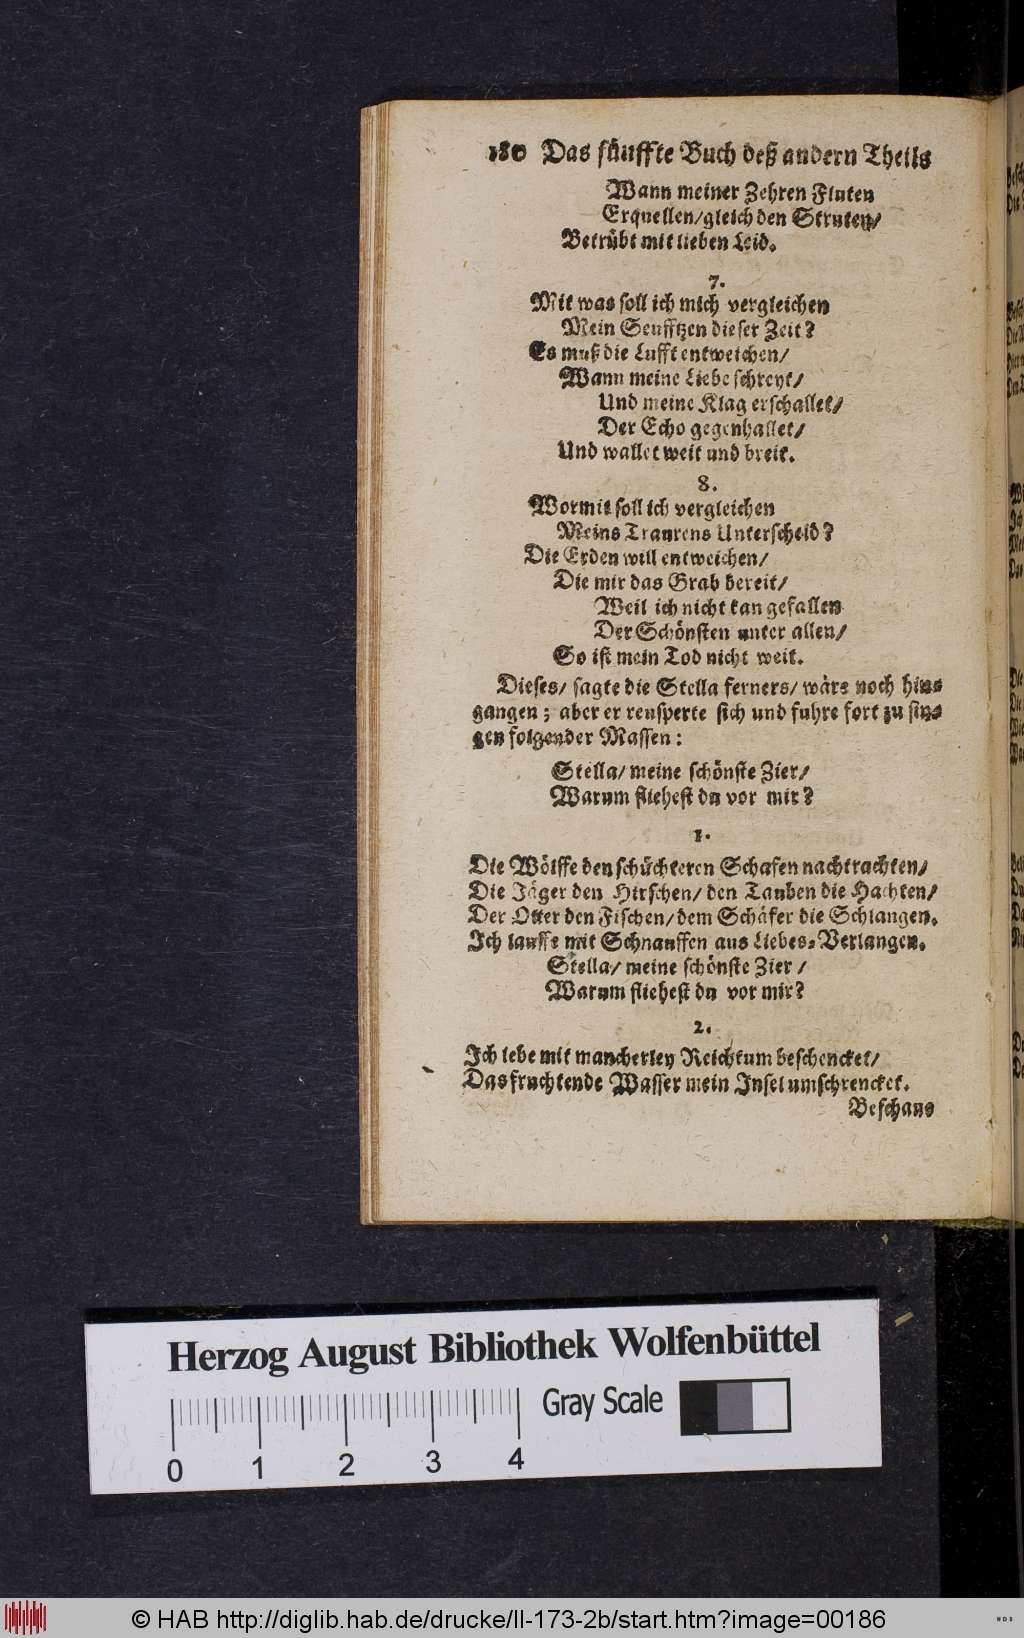 180 Das fünffte Buch deß andern Theils
Wann meiner Zehren Fluten
Erquellen/ gleich den Struten/
Betrübt mit lieben Leid.
7.
Mit was soll ich mich vergleichen
Mein Seufftzen dieser Zeit?
Es muß die Lufft entweichen/
Wann meine Liebe schreyt/
Und meine Klag erschallet/
Der Echo gegenhallet/
Und wallet weit und breit.
8.
Wormit soll ich vergleichen
Meins Traurens Unterscheid?
Die Erden will entweichen/
Die mir das Grab bereit/
Weil ich nicht kan gefallen
Der Schönsten unter allen/
So ist mein Tod nicht weit.
Dieses/ sagte die Stella ferners/ wäre noch hin-
gangen; aber er reusperte sich und fuhre fort zu sin-
gen folgender Massen:
Stella/ meine schönste Zier/
Warum fliehest du vor mir?
1.
Die Wölffe den schüchteren Schafen nachtrachten/
Die Jäger den Hirschen/ den Tauben die Hachten/
Der Otter den Fischen/ dem Schäfer die Schlangen.
Ich lauffe mit Schnauffen aus Liebes-Verlangen.
Stella/ meine schönste Zier/
Warum fliehest du vor mir?
2.
Ich lebe mit mancherley Reichtum beschencket/
Das fruchtende Wasser mein Insel umschrencket.
Beschaue
Herzog August Bibliothek Wolfenbüttel
Gray Scale
0 1 2 3 4
© HAB http://diglib.hab.de/drucke/ll-173-2b/start.htm?image=00186